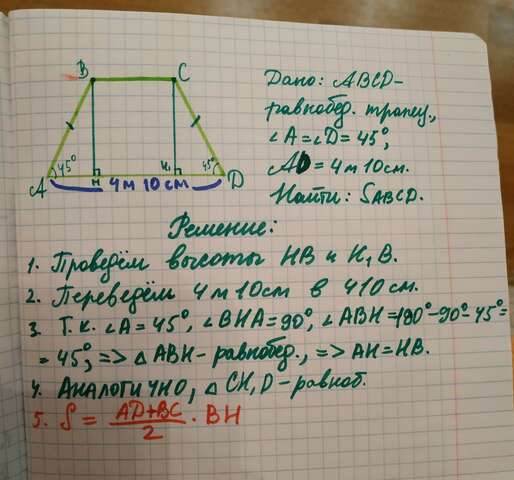 B C
45° 45°
A H H₁ D
4 м 10 см
Дано: ABCD –
равнобед. трапец.,
∠A = ∠D = 45°,
AD = 4 м 10 см.
Найти: SABCD.
Решение:
1. Проведём высоты HB и H₁B.
2. Переведём 4 м 10 см в 410 см.
3. Т.к. ∠A = 45°, ∠BHA = 90°, ∠ABH = 180° – 90° – 45° =
= 45°, => △ ABH – равнобед., => AH = HB.
4. Аналогично, △ CH₁D – равноб.
5. S = (AD+BC)/2 · BH